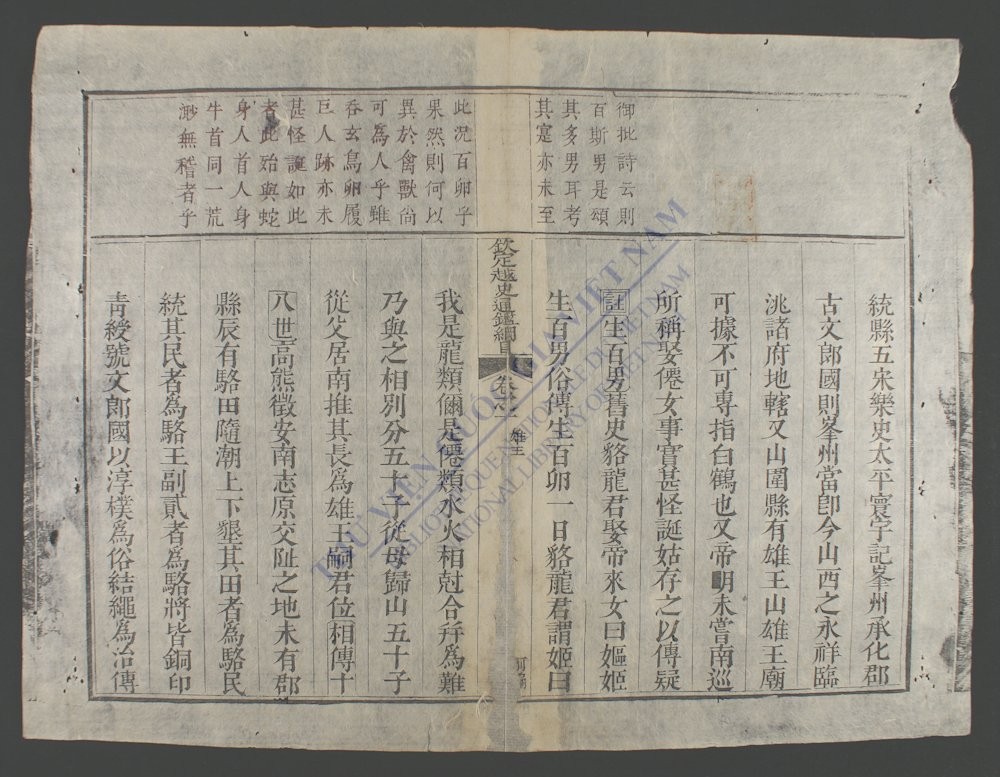 御批詩云則
百斯男是頌
其多男耳考
其寔亦未至
此況百卵子
果然則何以
異於禽獸尙
可為人乎雖
吞玄鳥卵履
巨人跡亦未
甚怪誕如此
者此殆與蛇
身人首人身
牛首同一荒
渺無稽者乎
統縣五宋樂史太平寰宇記峯州承化郡
古文郎國則峯州當卽今山西之永祥臨
洮諸府地轄又山圍縣有雄王山雄王廟
可據不可專指白鶴也又帝明未嘗南巡
所稱娶僊女事實甚怪誕姑存之以傳疑
註生百男舊史貉龍君娶帝來女曰嫗姬
生百男俗傳生百卵一日貉龍君謂姬曰
欽定越史通鑑綱目 卷之一 雄王
我是龍類儞是僊類水火相尅合幷為難
乃與之相別分五十子從母歸山五十子
從父居南推其長爲雄王嗣君位相傳十
八世高熊徵安南志原交阯之地未有郡
縣辰有駱田隨潮上下墾其田者為駱民
統其民者為駱王副貳者為駱將皆銅印
青綬號文郎國以淳樸爲俗結繩為治傳
THƯ VIỆN QUỐC GIA VIỆT NAM
NATIONAL LIBRARY OF VIETNAM